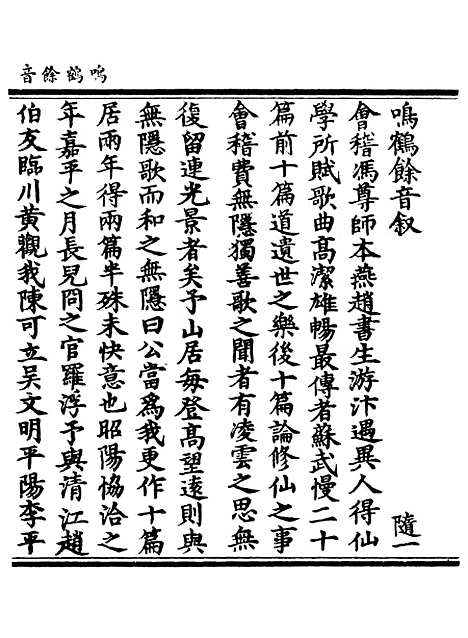 鳴鶴餘音
鳴鶴餘音叙　隨一
會稽馮尊師本燕趙書生游汴遇異人得仙
學所賦歌曲高潔雄暢最傳者蘇武慢二十
篇前十篇道遺世之樂後十篇論修仙之事
會稽費無隱獨善歌之聞者有凌雲之思無
復留連光景者矣予山居每登高望遠則與
無隱歌而和之無隱曰公當爲我更作十篇
居兩年得兩篇半殊未快意也昭陽恊洽之
年嘉平之月長兒冋之官羅浮予與清江趙
伯友臨川黄觀我陳可立吴文明平陽李平